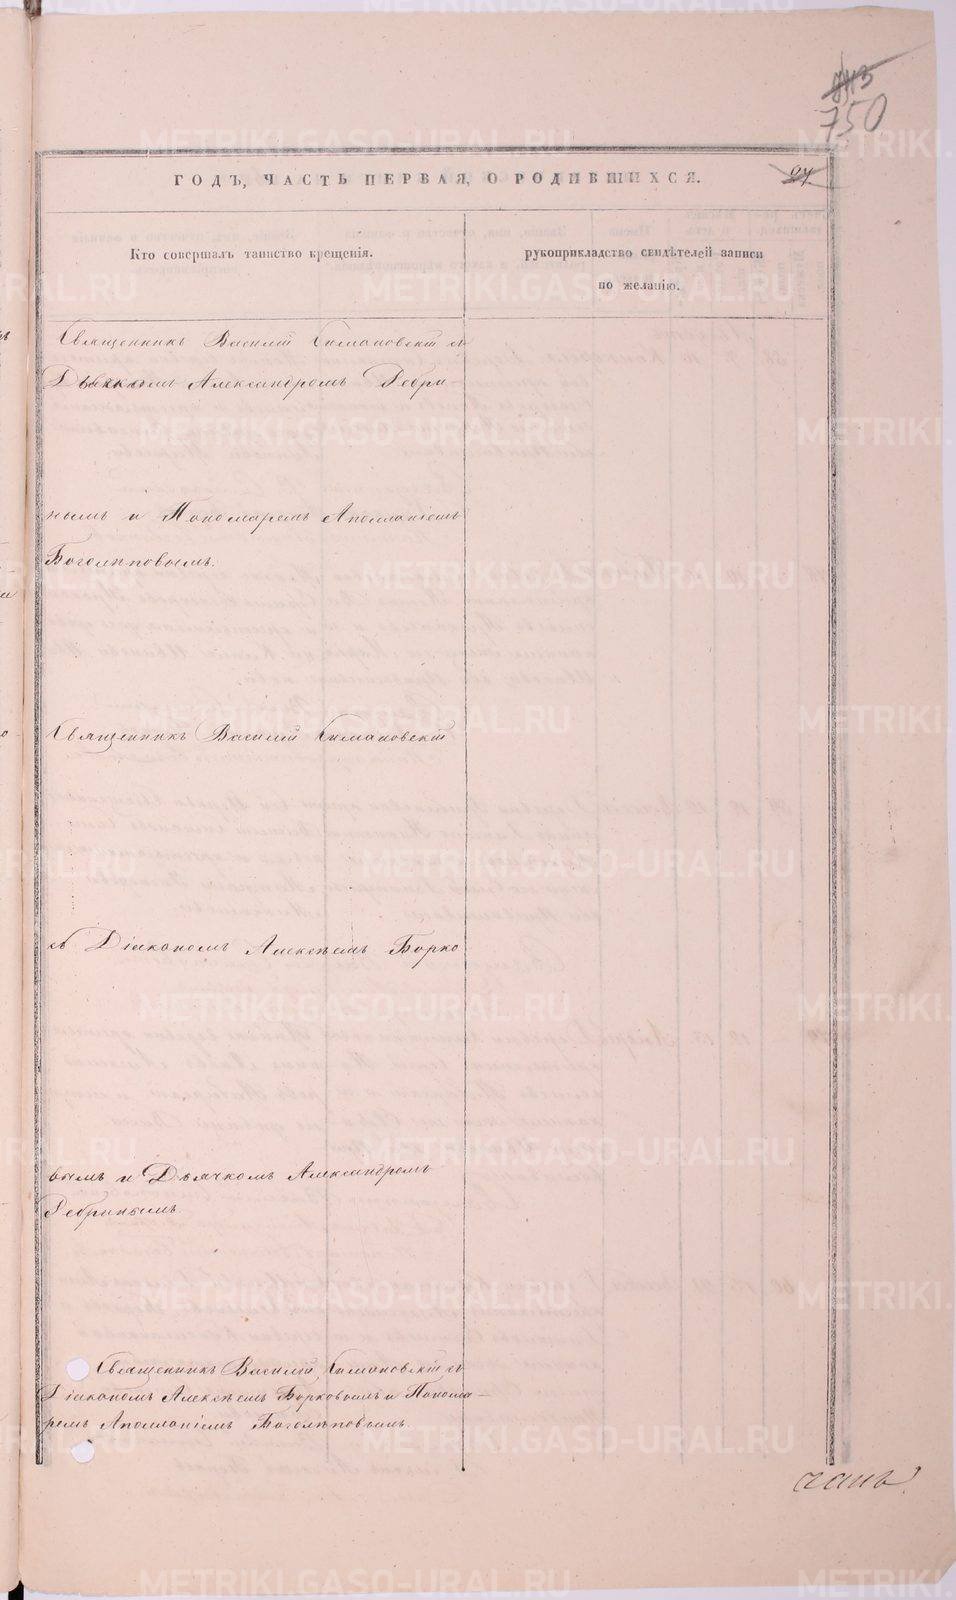 750
ГОДЪ, ЧАСТЬ ПЕРВАЯ, О РОДИВШИХСЯ.
Кто совершалъ таинство крещенія.
рукоприкладство свидѣтелей записи
по желанію.
Священникъ Василій Симановскій съ
Дьячкомъ Александромъ Ребри-
нымъ и Пономаремъ Аполланіемъ
Боголѣповымъ.
Священникъ Василій Симановскій
съ Діакономъ Алексѣемъ Борко
вымъ и Дьячкомъ Александромъ
Ребринымъ.
Священникъ Василій Симановскій съ
Діакономъ Алексѣемъ Борковымъ и Понома-
ремъ Аполланіемъ Боголѣповымъ.
METRIKI.GASO-URAL.RU